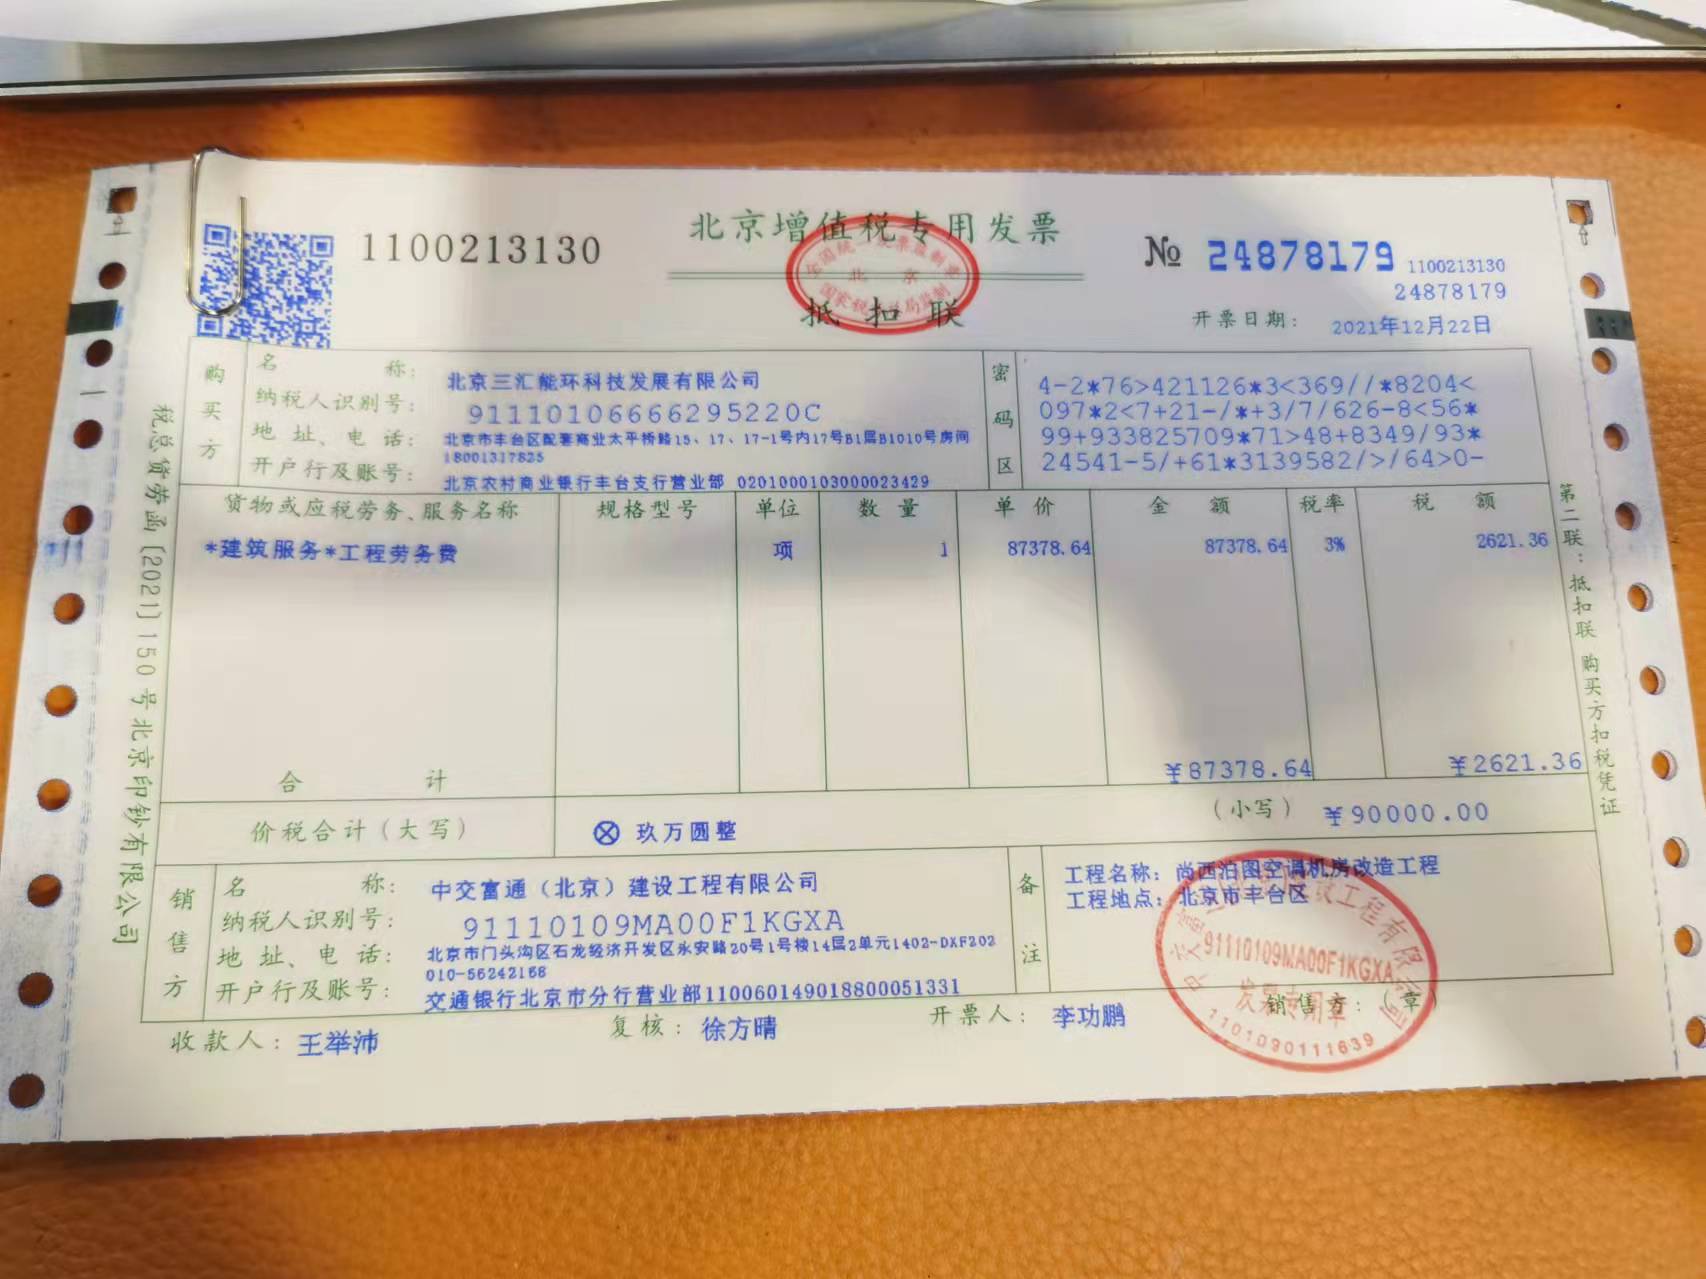 1100213130
北京增值税专用发票
抵扣联
№ 24878179
1100213130
24878179
开票日期: 2021年12月22日
购买方
名称: 北京三汇能环科技发展有限公司
纳税人识别号: 91110106666295220C
地址、电话: 北京市丰台区配套商业太平桥路15、17、17-1号内17号B1层B1010号房间
18001317825
开户行及账号: 北京农村商业银行丰台支行营业部 0201000103000023429
密码区
4-2*76>421126*3<369//*8204<
097*2<7+21-/*+3/7/626-8<56*
99+933825709*71>48+8349/93*
24541-5/+61*3139582/>/64>0-
货物或应税劳务、服务名称 规格型号 单位 数量 单价 金额 税率 税额
*建筑服务*工程劳务费 项 1 87378.64 87378.64 3% 2621.36
合计 ¥87378.64 ¥2621.36
价税合计(大写) ⊗ 玖万圆整 (小写) ¥90000.00
销售方
名称: 中交富通(北京)建设工程有限公司
纳税人识别号: 91110109MA00F1KGXA
地址、电话: 北京市门头沟区石龙经济开发区永安路20号1号楼14层2单元1402-DXF202
010-56242168
开户行及账号: 交通银行北京市分行营业部110060149018800051331
备注
工程名称: 尚西泊图空调机房改造工程
工程地点: 北京市丰台区
收款人: 王举沛 复核: 徐方晴 开票人: 李功鹏 销售方: (章)
91110109MA00F1KGXA
发票专用章
1101090111639
税总货劳函〔2021〕150号北京印钞有限公司
第二联:抵扣联 购买方扣税凭证